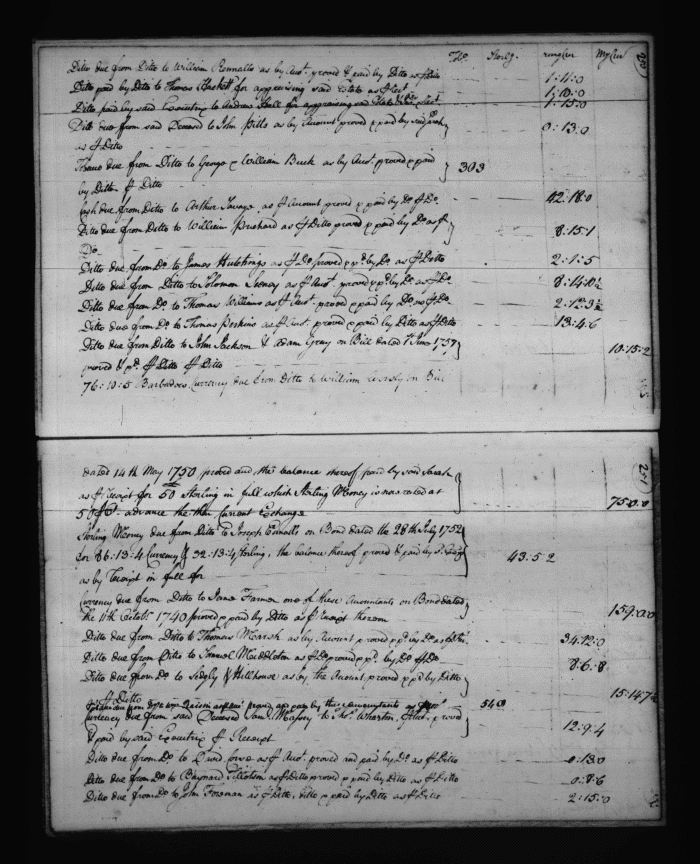 Tbo. Sterlg. runn Cur Myl Cur
Ditto due from Ditto to William Rennalls as by Acct. proved & paid by Ditto as ℔ 1:4:0
Ditto paid by Ditto to Thomas for appraising said Estate as ℔ 1:10:0
Ditto paid by said Executrix to Andrew Hall for appraising said Estate 1:15:0
Ditto due from said Deceased to John Pitts as by Account proved & paid by said Sarah 0:13:0
as ℔ Ditto
due from Ditto to George & William Buck as by Acct. proved & paid 303
by Ditto ℔ Ditto
Cash due from Ditto to Arthur Savage as ℔ Account proved & paid by Do. ℔ Do. 42:18:0
Ditto due from Ditto to William Prichard as ℔ Ditto proved & paid by Do. as ℔ 8:15:1
Do
Ditto due from Do. to James Hutchings as ℔ Do. proved & pd. by Do. as ℔ Ditto 2:1:5
Ditto due from Ditto to Solomon as ℔ Acct. proved & pd. by Do. as ℔ Do. 8:14:0½
Ditto due from Do. to Thomas Williams as ℔ Acct. proved & paid by Do. as ℔ Do. 2:12:3½
Ditto due from Do. to Thomas Perkins as ℔ Acct. proved & paid by Ditto as ℔ Ditto 13:4:6
Ditto due from Ditto to John Jackson & Adam Gray on Bill dated June 1757 10:15:2
proved & pd. ℔ Ditto ℔ Ditto
76:10:5 Barbadoes Currency due from Ditto to William on Bill
201
dated 14th May 1750 proved and the balance thereof paid by said Sarah
as ℔ Receipt for 50 Sterling in full which Sterling Money is now rated at 75:0:0
50 ℔ Ct. advance the then Current Exchange
Sterling Money due from Ditto to Joseph on Bond dated the 28th July 1752
for 86:13:4 Currency & 32:13:4 Sterling, the balance thereof proved & paid by 43:5:2
as by Receipt in full for
Currency due from Ditto to Jane Farmer one of these Accountants on Bond dated
the 11th Octobr. 1740 proved & paid by Ditto as ℔ Receipt thereon 159:0:0
Ditto due from Ditto to Thomas Marsh as by Account proved & pd. by Do. as ℔ Ditto 34:12:0
Ditto due from Ditto to Samuel Middleton as ℔ Do. proved & pd. by Do. ℔ Do. 8:6:8
Ditto due from Do. to Sedgly & Hillhouse as by the Account proved & pd by Ditto 15:14:7½
as ℔ Ditto
Tobacco due from as ℔ Acct. proved and paid by these Accountants as ℔ 540
Currency due from said Deceased Saml. Massey to Thos. Wharton, ℔ Acct. proved 12:9:4
& paid by said Executrix ℔ Receipt
Ditto due from Do. to David as ℔ Acct. proved and paid by Do. as ℔ Ditto 0:13:0
Ditto due from Do. to Baynard as ℔ Ditto proved & paid by Ditto as ℔ Ditto 0:7:6
Ditto due from Do. to John Foreman as ℔ Ditto, Ditto & paid by Ditto as ℔ Ditto 2:15:0